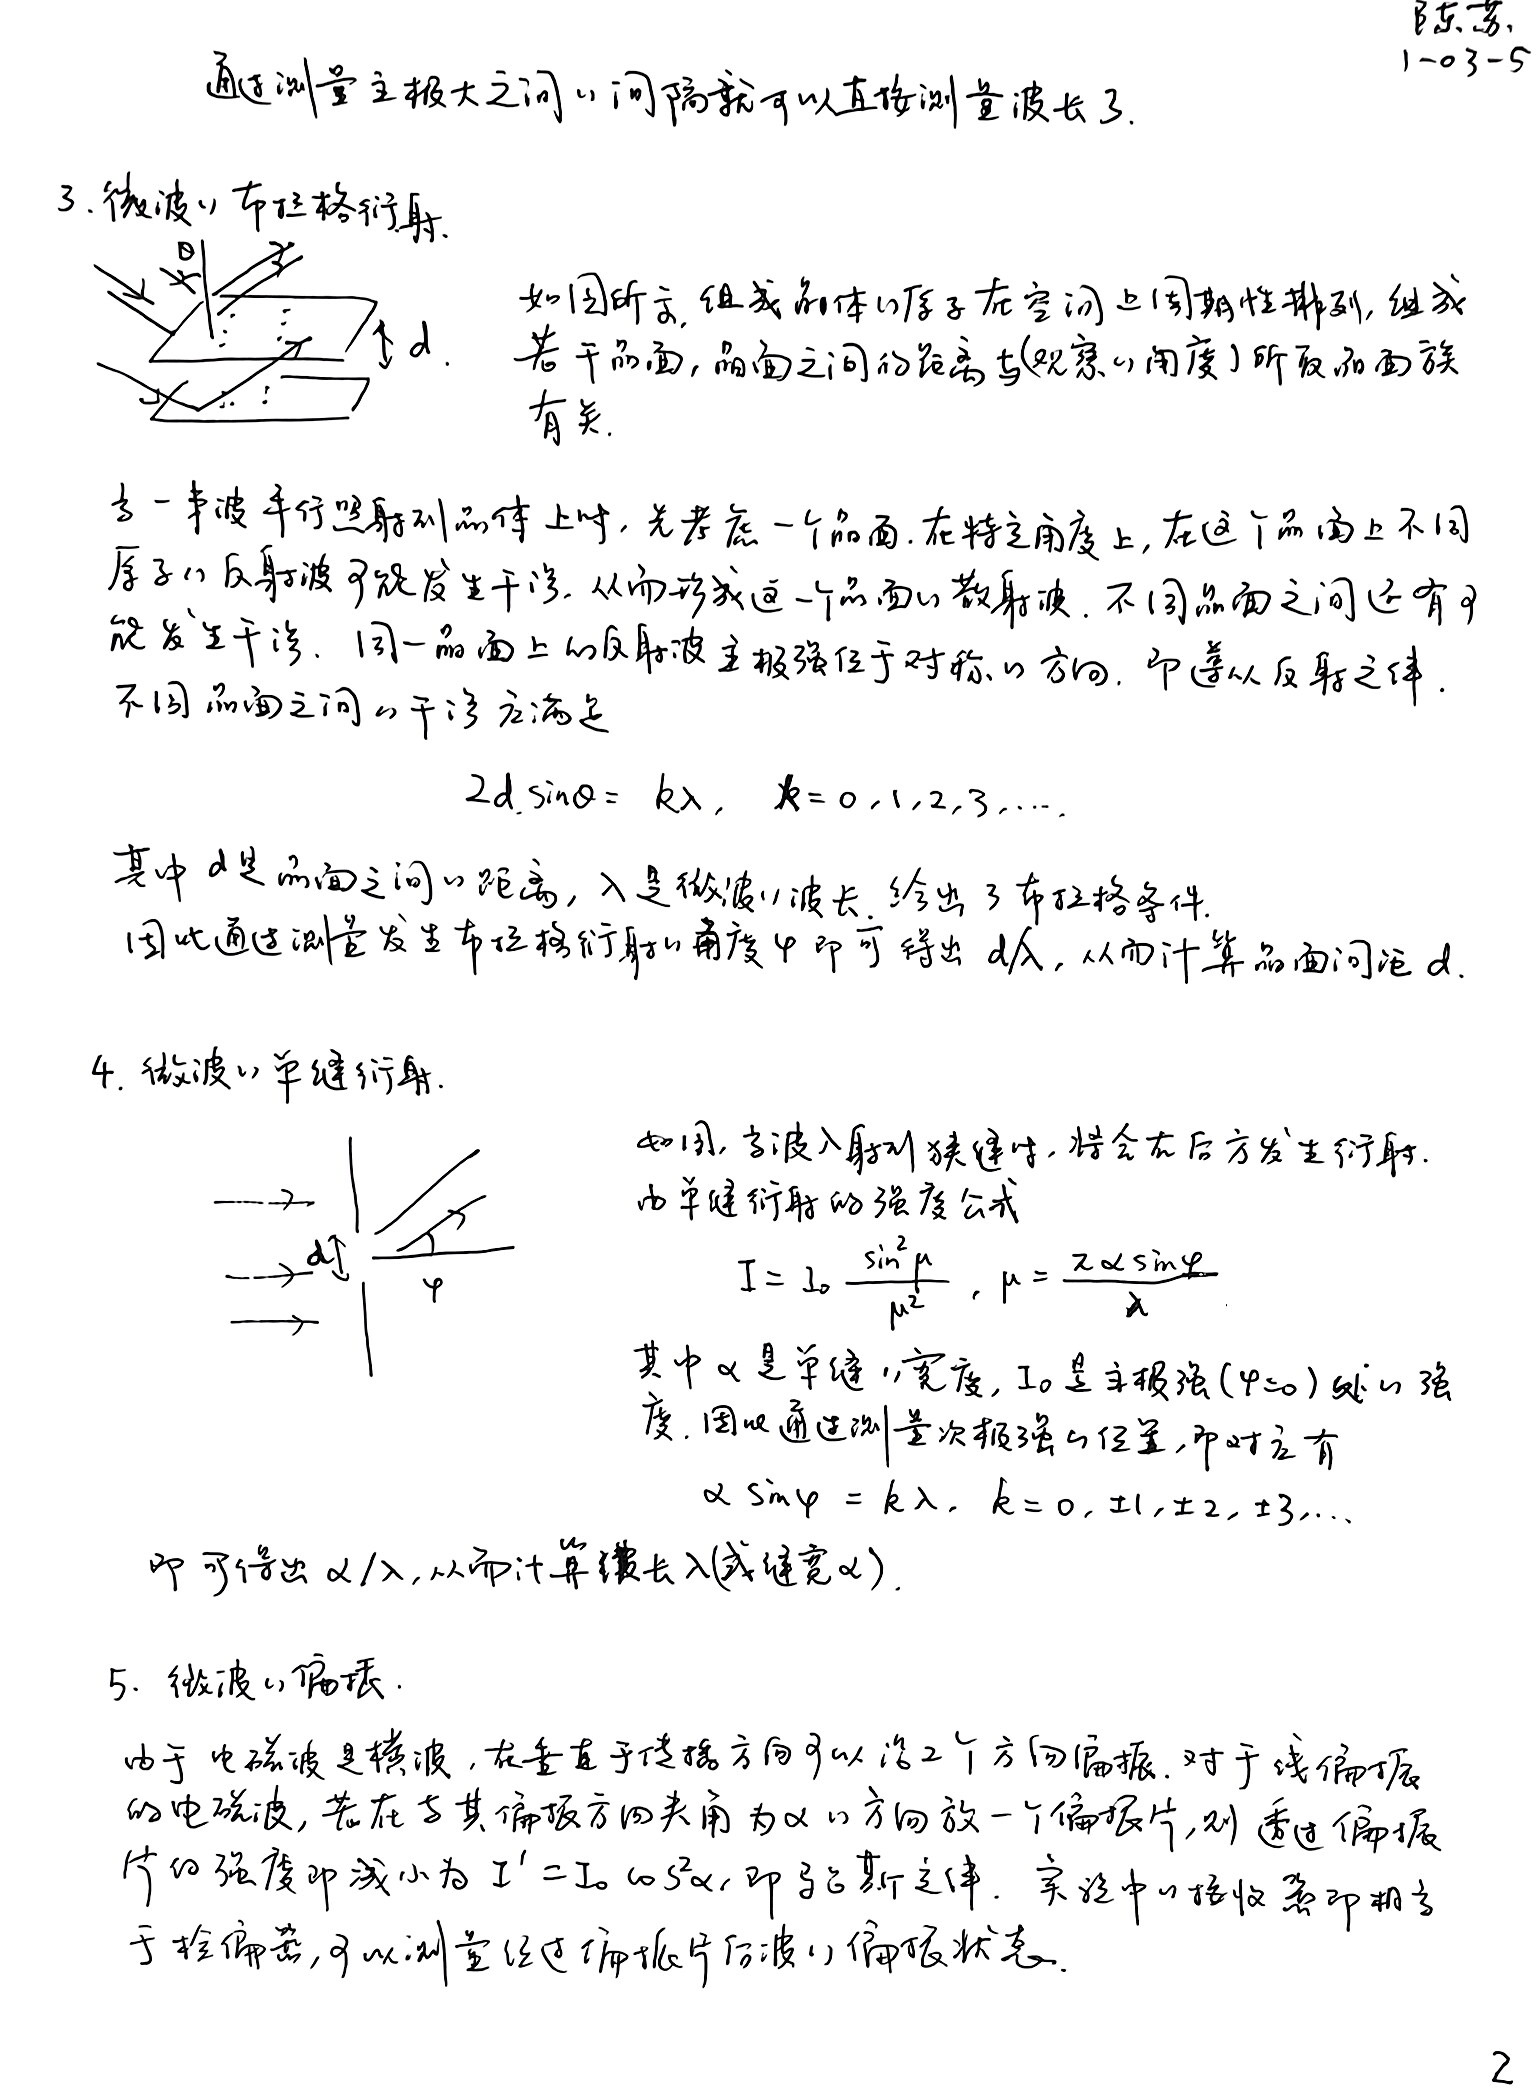 陈苏.
1-03-5
通过测量主极大之间的间隔就可以直接测量波长了.
3. 微波的布拉格衍射.
θ
d.
如图所示, 组成晶体的原子在空间上周期性排列, 组成
若干晶面, 晶面之间的距离与(观察的角度)所取晶面族
有关.
当一束波平行照射到晶体上时, 先考虑一个晶面. 在特定角度上, 在这个晶面上不同
原子的反射波可能发生干涉. 从而形成这一个晶面的散射波. 不同晶面之间还有可
能发生干涉. 同一晶面上的反射波主极强位于对称的方向. 即遵从反射定律.
不同晶面之间的干涉应满足
2d sinθ = kλ, k = 0, 1, 2, 3, ....
其中 d是晶面之间的距离, λ是微波的波长. 给出了布拉格条件.
因此通过测量发生布拉格衍射的角度φ即可得出 d/λ, 从而计算晶面间距 d.
4. 微波的单缝衍射.
d
φ
如图, 当波入射到狭缝时, 将会在后方发生衍射.
由单缝衍射的强度公式
I = I₀ sin²μ / μ² , μ = παsinφ / λ
其中α是单缝的宽度, I₀是主极强(φ=0)处的强
度. 因此通过测量次极强的位置, 即对应有
α sinφ = kλ. k = 0, ±1, ±2, ±3, ...
即可得出 α/λ, 从而计算波长λ(或缝宽α).
5. 微波的偏振.
由于电磁波是横波, 在垂直于传播方向可以沿2个方向偏振. 对于线偏振
的电磁波, 若在与其偏振方向夹角为α的方向放一个偏振片, 则透过偏振
片的强度即减小为 I' = I₀ cos²α, 即马吕斯定律. 实验中的接收器即相当
于检偏器, 可以测量经过偏振片后波的偏振状态.
2